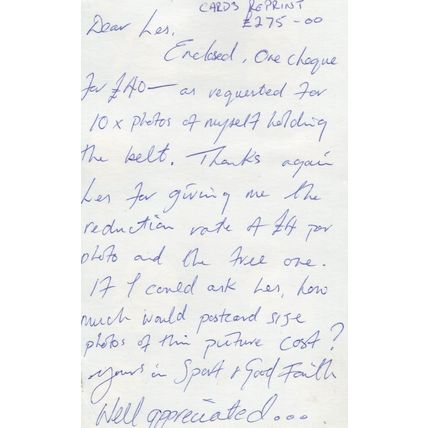 CARDS REPRINT
£275-00
Dear Les,
Enclosed, One cheque
for £40— as requested for
10 x photos of myself holding
the belt. Thanks again
Les for giving me the
reduction rate of £4 per
photo and the free one.
If I could ask Les, how
much would postcard size
photos of this picture cost?
Yours in Sport & Good Faith
Well appreciated....